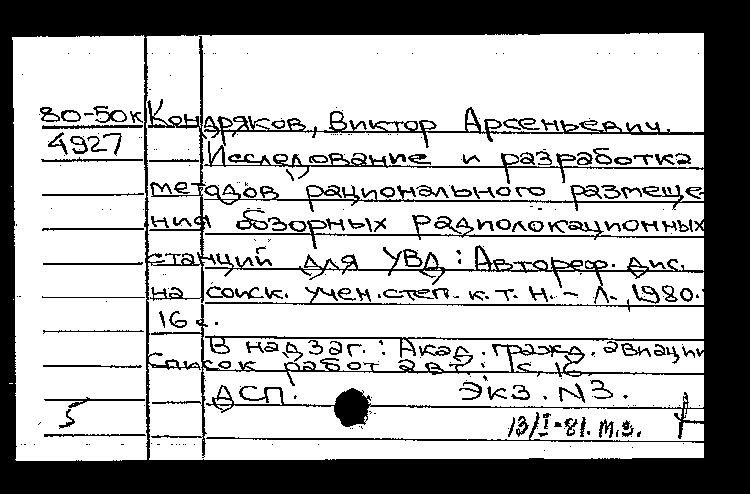 80-50к Кондряков, Виктор Арсеньевич.
4927
Исследование и разработка
методов рационального размеще-
ния обзорных радиолокационных
станций для УВД : Автореф. дис.
на соиск. учен. степ. к. т. н. - Л., 1980.
16 с.
В надзаг.: Акад. гражд. авиации
Список работ авт.: с. 16.
ДСП. Экз. N3.
5 13/I-81. м.з.